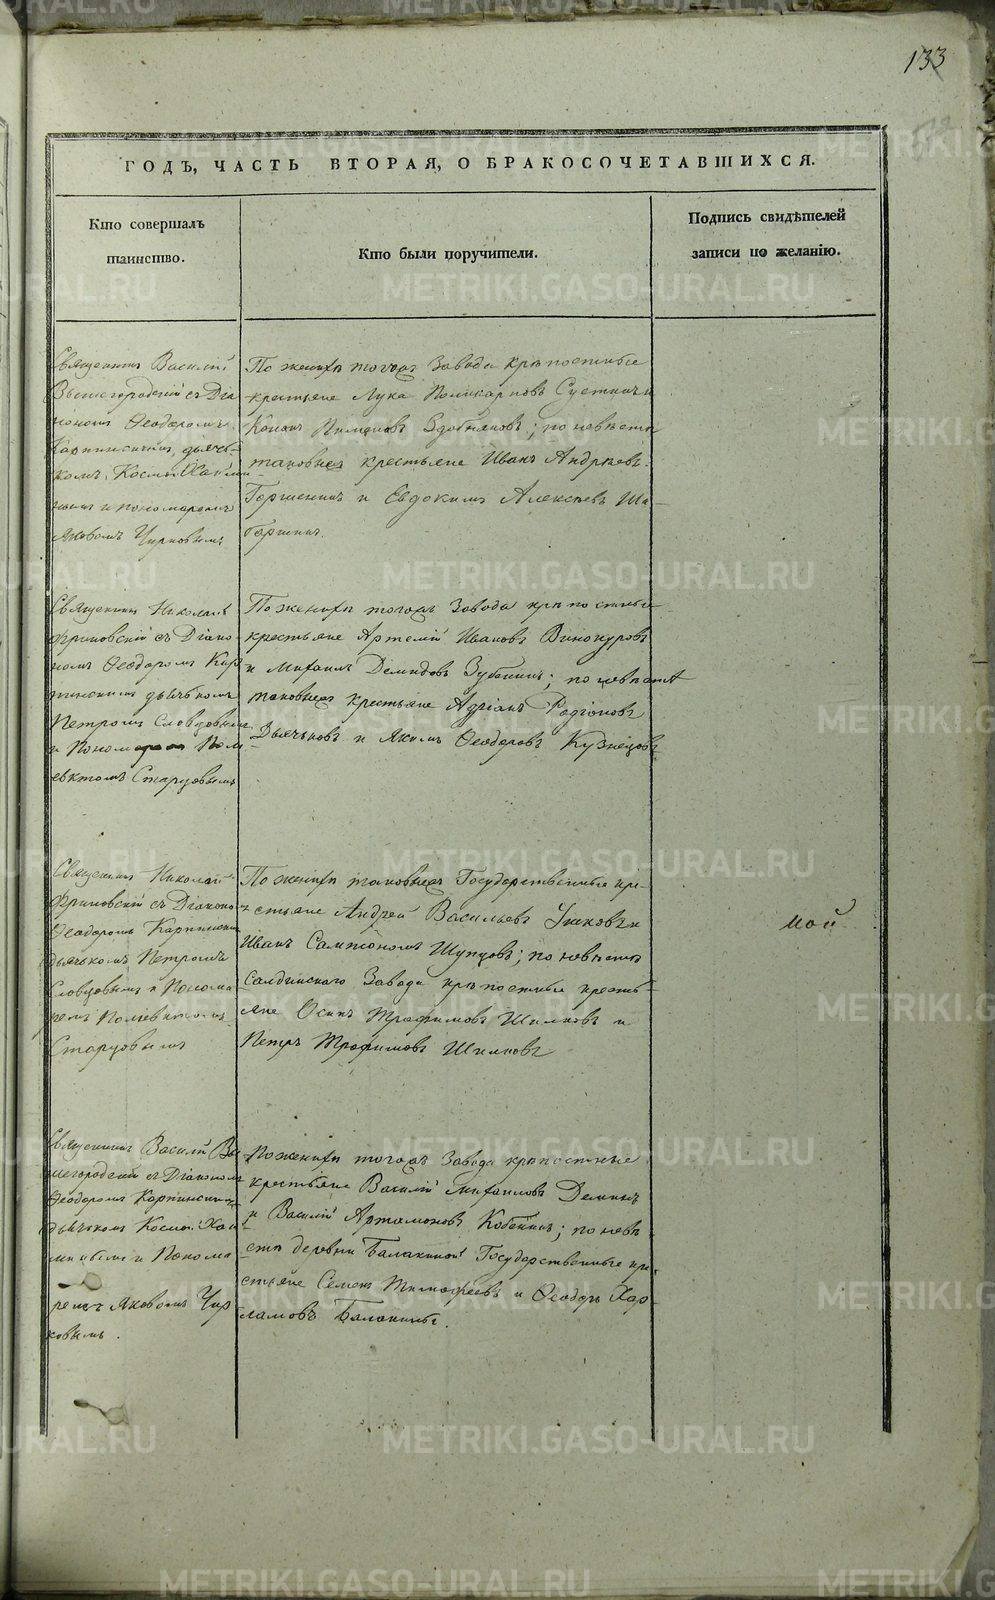 133
ГОДЪ, ЧАСТЬ ВТОРАЯ, О БРАКОСОЧЕТАВШИХСЯ.
Кто совершалъ
таинство.
Кто были поручители.
Подпись свидѣтелей
записи по желанію.
Священникъ Василій
Вышегородскій съ Діа-
кономъ Ѳеодоромъ
Карпинскимъ, дьяч-
комъ Космой
нымъ и пономаремъ
Яковомъ Чирковымъ
По женихѣ тогожъ Завода крѣпостные
крестьяне Лука Поликарповъ и
Конанъ Пименовъ ; по невѣстѣ
таковыежъ крестьяне Иванъ Андреевъ
Горшенинъ и Евдокимъ Алексѣевъ Ша-
Священникъ Николай
съ Діако-
номъ Ѳеодоромъ Кар-
пинскимъ дьячкомъ
Петромъ Словцовымъ
и Пономаремъ Поли-
евктомъ Старцовымъ
По женихѣ тогожъ Завода крѣпостные
крестьяне Артемій Ивановъ Винокуровъ
и Михаилъ Демидовъ Зубенинъ; по невѣстѣ
таковыежъ крестьяне Адріанъ Родіоновъ
Дьячковъ и Якимъ Ѳеодоровъ Кузнецовъ
Священникъ Николай
съ Діаконо-
Ѳеодоромъ Карпинскимъ
дьячькомъ Петромъ
Словцовымъ и Понома-
ремъ Полиевктомъ
Старцовымъ
По женихѣ таковыежъ Государственные кре-
стьяне Андрей Васильевъ Ушковъ и
Иванъ Сампсоновъ Шупцовъ; по невѣстѣ
Салдинскаго Завода крѣпостные кресть-
яне Осипъ Трофимовъ Шилковъ и
Петръ Трофимовъ Шилковъ
май
Священникъ Василій Вы-
шегородскій съ Діакономъ
Ѳеодоромъ Карпинскимъ
дьячкомъ Космой
и Понома-
ремъ Яковомъ Чир-
ковымъ.
По женихѣ тогожъ Завода крѣпостные
крестьяне Василій Михаиловъ Деминъ
и Василій Артамоновъ ; по невѣ-
стѣ деревни Балакиной Государственные кре-
стьяне Семенъ Тимофеевъ и Ѳеодоръ Хар-
ламовъ Балакины.
METRIKI.GASO-URAL.RU